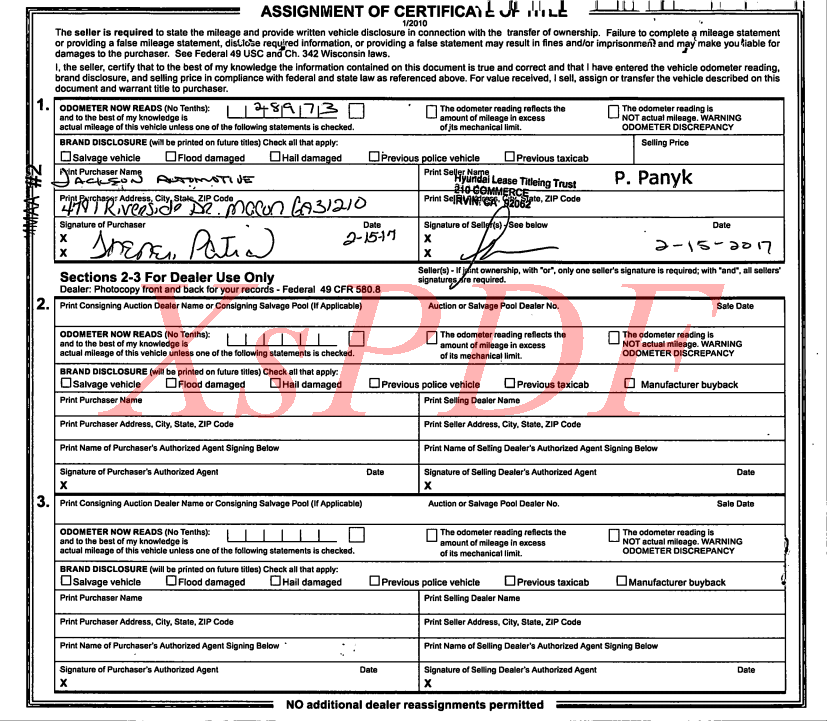 ASSIGNMENT OF CERTIFICATE OF TITLE
1/2010
The seller is required to state the mileage and provide written vehicle disclosure in connection with the transfer of ownership. Failure to complete a mileage statement
or providing a false mileage statement, disclose required information, or providing a false statement may result in fines and/or imprisonment and may make you liable for
damages to the purchaser. See Federal 49 USC and Ch. 342 Wisconsin laws.
I, the seller, certify that to the best of my knowledge the information contained on this document is true and correct and that I have entered the vehicle odometer reading,
brand disclosure, and selling price in compliance with federal and state law as referenced above. For value received, I sell, assign or transfer the vehicle described on this
document and warrant title to purchaser.
1.
ODOMETER NOW READS (No Tenths): 28973
and to the best of my knowledge is
actual mileage of this vehicle unless one of the following statements is checked.
The odometer reading reflects the
amount of mileage in excess
of its mechanical limit.
The odometer reading is
NOT actual mileage. WARNING
ODOMETER DISCREPANCY
BRAND DISCLOSURE (will be printed on future titles) Check all that apply:
Selling Price
Salvage vehicle Flood damaged Hail damaged Previous police vehicle Previous taxicab
#MAA #2
Print Purchaser Name
JACKSON AUTOMOTIVE
Print Seller Name
Hyundai Lease Titleing Trust
P. Panyk
Print Purchaser Address, City, State, ZIP Code
Riverside Dr. Macon GA 31210
Print Seller Address, City, State, ZIP Code
210 COMMERCE
IRVIN, CA 92062
Signature of Purchaser Date
X
X
2-15-17
Signature of Seller(s) - See below Date
X
X
2-15-2017
Seller(s) - If joint ownership, with "or", only one seller's signature is required; with "and", all sellers'
signatures are required.
Sections 2-3 For Dealer Use Only
Dealer: Photocopy front and back for your records - Federal 49 CFR 580.8
2.
Print Consigning Auction Dealer Name or Consigning Salvage Pool (If Applicable) Auction or Salvage Pool Dealer No. Sale Date
ODOMETER NOW READS (No Tenths):
and to the best of my knowledge is
actual mileage of this vehicle unless one of the following statements is checked.
The odometer reading reflects the
amount of mileage in excess
of its mechanical limit.
The odometer reading is
NOT actual mileage. WARNING
ODOMETER DISCREPANCY
BRAND DISCLOSURE (will be printed on future titles) Check all that apply:
Salvage vehicle Flood damaged Hail damaged Previous police vehicle Previous taxicab Manufacturer buyback
XsPDF
Print Purchaser Name Print Selling Dealer Name
Print Purchaser Address, City, State, ZIP Code Print Seller Address, City, State, ZIP Code
Print Name of Purchaser's Authorized Agent Signing Below Print Name of Selling Dealer's Authorized Agent Signing Below
Signature of Purchaser's Authorized Agent Date Signature of Selling Dealer's Authorized Agent Date
X X
3.
Print Consigning Auction Dealer Name or Consigning Salvage Pool (If Applicable) Auction or Salvage Pool Dealer No. Sale Date
ODOMETER NOW READS (No Tenths):
and to the best of my knowledge is
actual mileage of this vehicle unless one of the following statements is checked.
The odometer reading reflects the
amount of mileage in excess
of its mechanical limit.
The odometer reading is
NOT actual mileage. WARNING
ODOMETER DISCREPANCY
BRAND DISCLOSURE (will be printed on future titles) Check all that apply:
Salvage vehicle Flood damaged Hail damaged Previous police vehicle Previous taxicab Manufacturer buyback
Print Purchaser Name Print Selling Dealer Name
Print Purchaser Address, City, State, ZIP Code Print Seller Address, City, State, ZIP Code
Print Name of Purchaser's Authorized Agent Signing Below Print Name of Selling Dealer's Authorized Agent Signing Below
Signature of Purchaser's Authorized Agent Date Signature of Selling Dealer's Authorized Agent Date
X X
NO additional dealer reassignments permitted